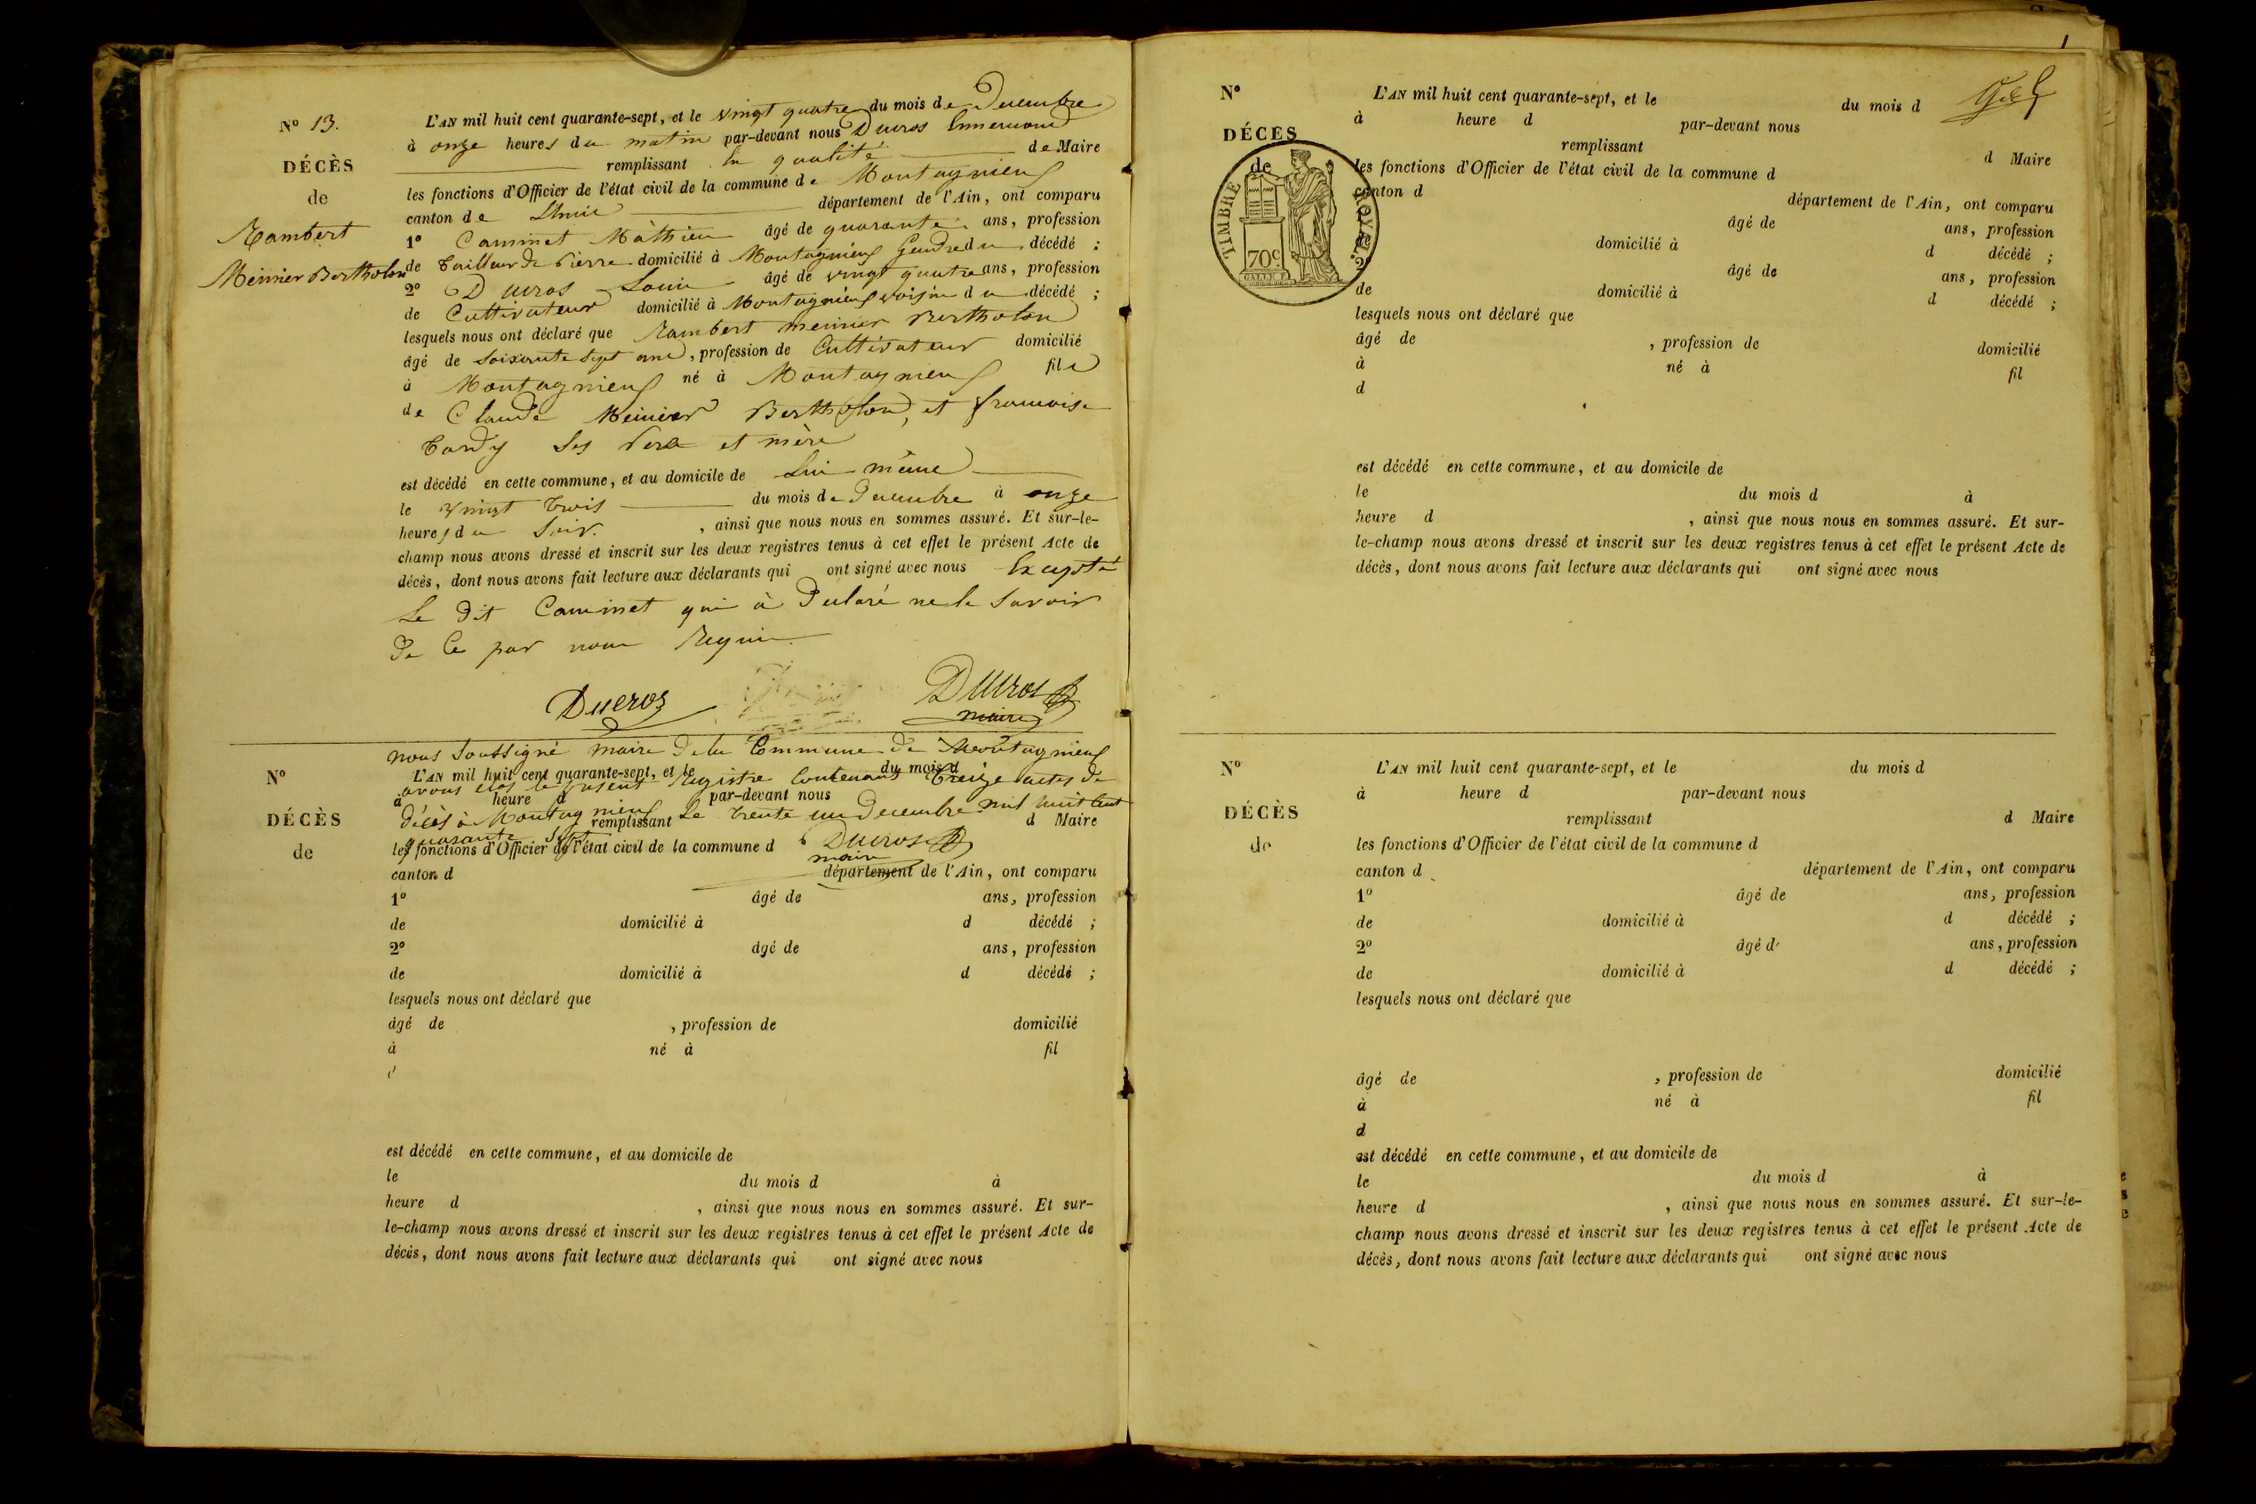 N° 13.
DÉCÈS
de
Rambert
Meinier Bertholon
L'AN mil huit cent quarante-sept, et le vingt quatre du mois de Decembre
à onze heures du matin par-devant nous Ducros
remplissant la qualité de Maire
les fonctions d'Officier de l'état civil de la commune de Montagnieu
canton de Lhuis département de l'Ain, ont comparu
1° Caminet Mathieu âgé de quarante ans, profession
de Tailleur de Pierre domicilié à Montagnieu Gendre du décédé ;
2° Ducros Louis âgé de vingt quatre ans, profession
de Cultivateur domicilié à Montagnieu voisin du décédé ;
lesquels nous ont déclaré que Rambert meinier Bertholon
âgé de soixante sept ans, profession de Cultivateur domicilié
à Montagnieu né à Montagnieu fils
de Claude Meinier Bertholon, et francoise
Tardy ses Pere et mère
est décédé en cette commune, et au domicile de lui même
le vingt trois du mois de Decembre à onze
heures du Soir. , ainsi que nous nous en sommes assuré. Et sur-le-
champ nous avons dressé et inscrit sur les deux registres tenus à cet effet le présent Acte de
décès, dont nous avons fait lecture aux déclarants qui ont signé avec nous Excepté
Le dit Caminet qui à Declaré ne le Savoir
de Ce par nous Requis
Ducros Ducros
maire
nous Soussigné maire de la Commune de Montagnieu
avons clos le present Registre Contenant Treize actes de
décès à Montagnieu Le trente un Decembre mil huit cent
quarante Sept
Ducros
maire
N°
DÉCÈS
de
L'AN mil huit cent quarante-sept, et le du mois d
à heure d par-devant nous
remplissant d Maire
les fonctions d'Officier de l'état civil de la commune d
canton d département de l'Ain, ont comparu
1° âgé de ans, profession
de domicilié à d décédé ;
2° âgé de ans, profession
de domicilié à d décédé ;
lesquels nous ont déclaré que
âgé de , profession de domicilié
à né à fil
d
est décédé en cette commune, et au domicile de
le du mois d à
heure d , ainsi que nous nous en sommes assuré. Et sur-
le-champ nous avons dressé et inscrit sur les deux registres tenus à cet effet le présent Acte de
décès, dont nous avons fait lecture aux déclarants qui ont signé avec nous
N°
DÉCES
de
TIMBRE ROYAL
70c.
L'AN mil huit cent quarante-sept, et le du mois d
à heure d par-devant nous
remplissant d Maire
les fonctions d'Officier de l'état civil de la commune d
canton d département de l'Ain, ont comparu
âgé de ans, profession
domicilié à d décédé ;
2° âgé de ans, profession
de domicilié à d décédé ;
lesquels nous ont déclaré que
âgé de , profession de domicilié
à né à fil
d
est décédé en cette commune, et au domicile de
le du mois d à
heure d , ainsi que nous nous en sommes assuré. Et sur-
le-champ nous avons dressé et inscrit sur les deux registres tenus à cet effet le présent Acte de
décès, dont nous avons fait lecture aux déclarants qui ont signé avec nous
N°
DÉCÈS
de
L'AN mil huit cent quarante-sept, et le du mois d
à heure d par-devant nous
remplissant d Maire
les fonctions d'Officier de l'état civil de la commune d
canton d département de l'Ain, ont comparu
1° âgé de ans, profession
de domicilié à d décédé ;
2° âgé d ans, profession
de domicilié à d décédé ;
lesquels nous ont déclaré que
âgé de , profession de domicilié
à né à fil
d
est décédé en cette commune, et au domicile de
le du mois d à
heure d , ainsi que nous nous en sommes assuré. Et sur-le-
champ nous avons dressé et inscrit sur les deux registres tenus à cet effet le présent Acte de
décès, dont nous avons fait lecture aux déclarants qui ont signé avec nous